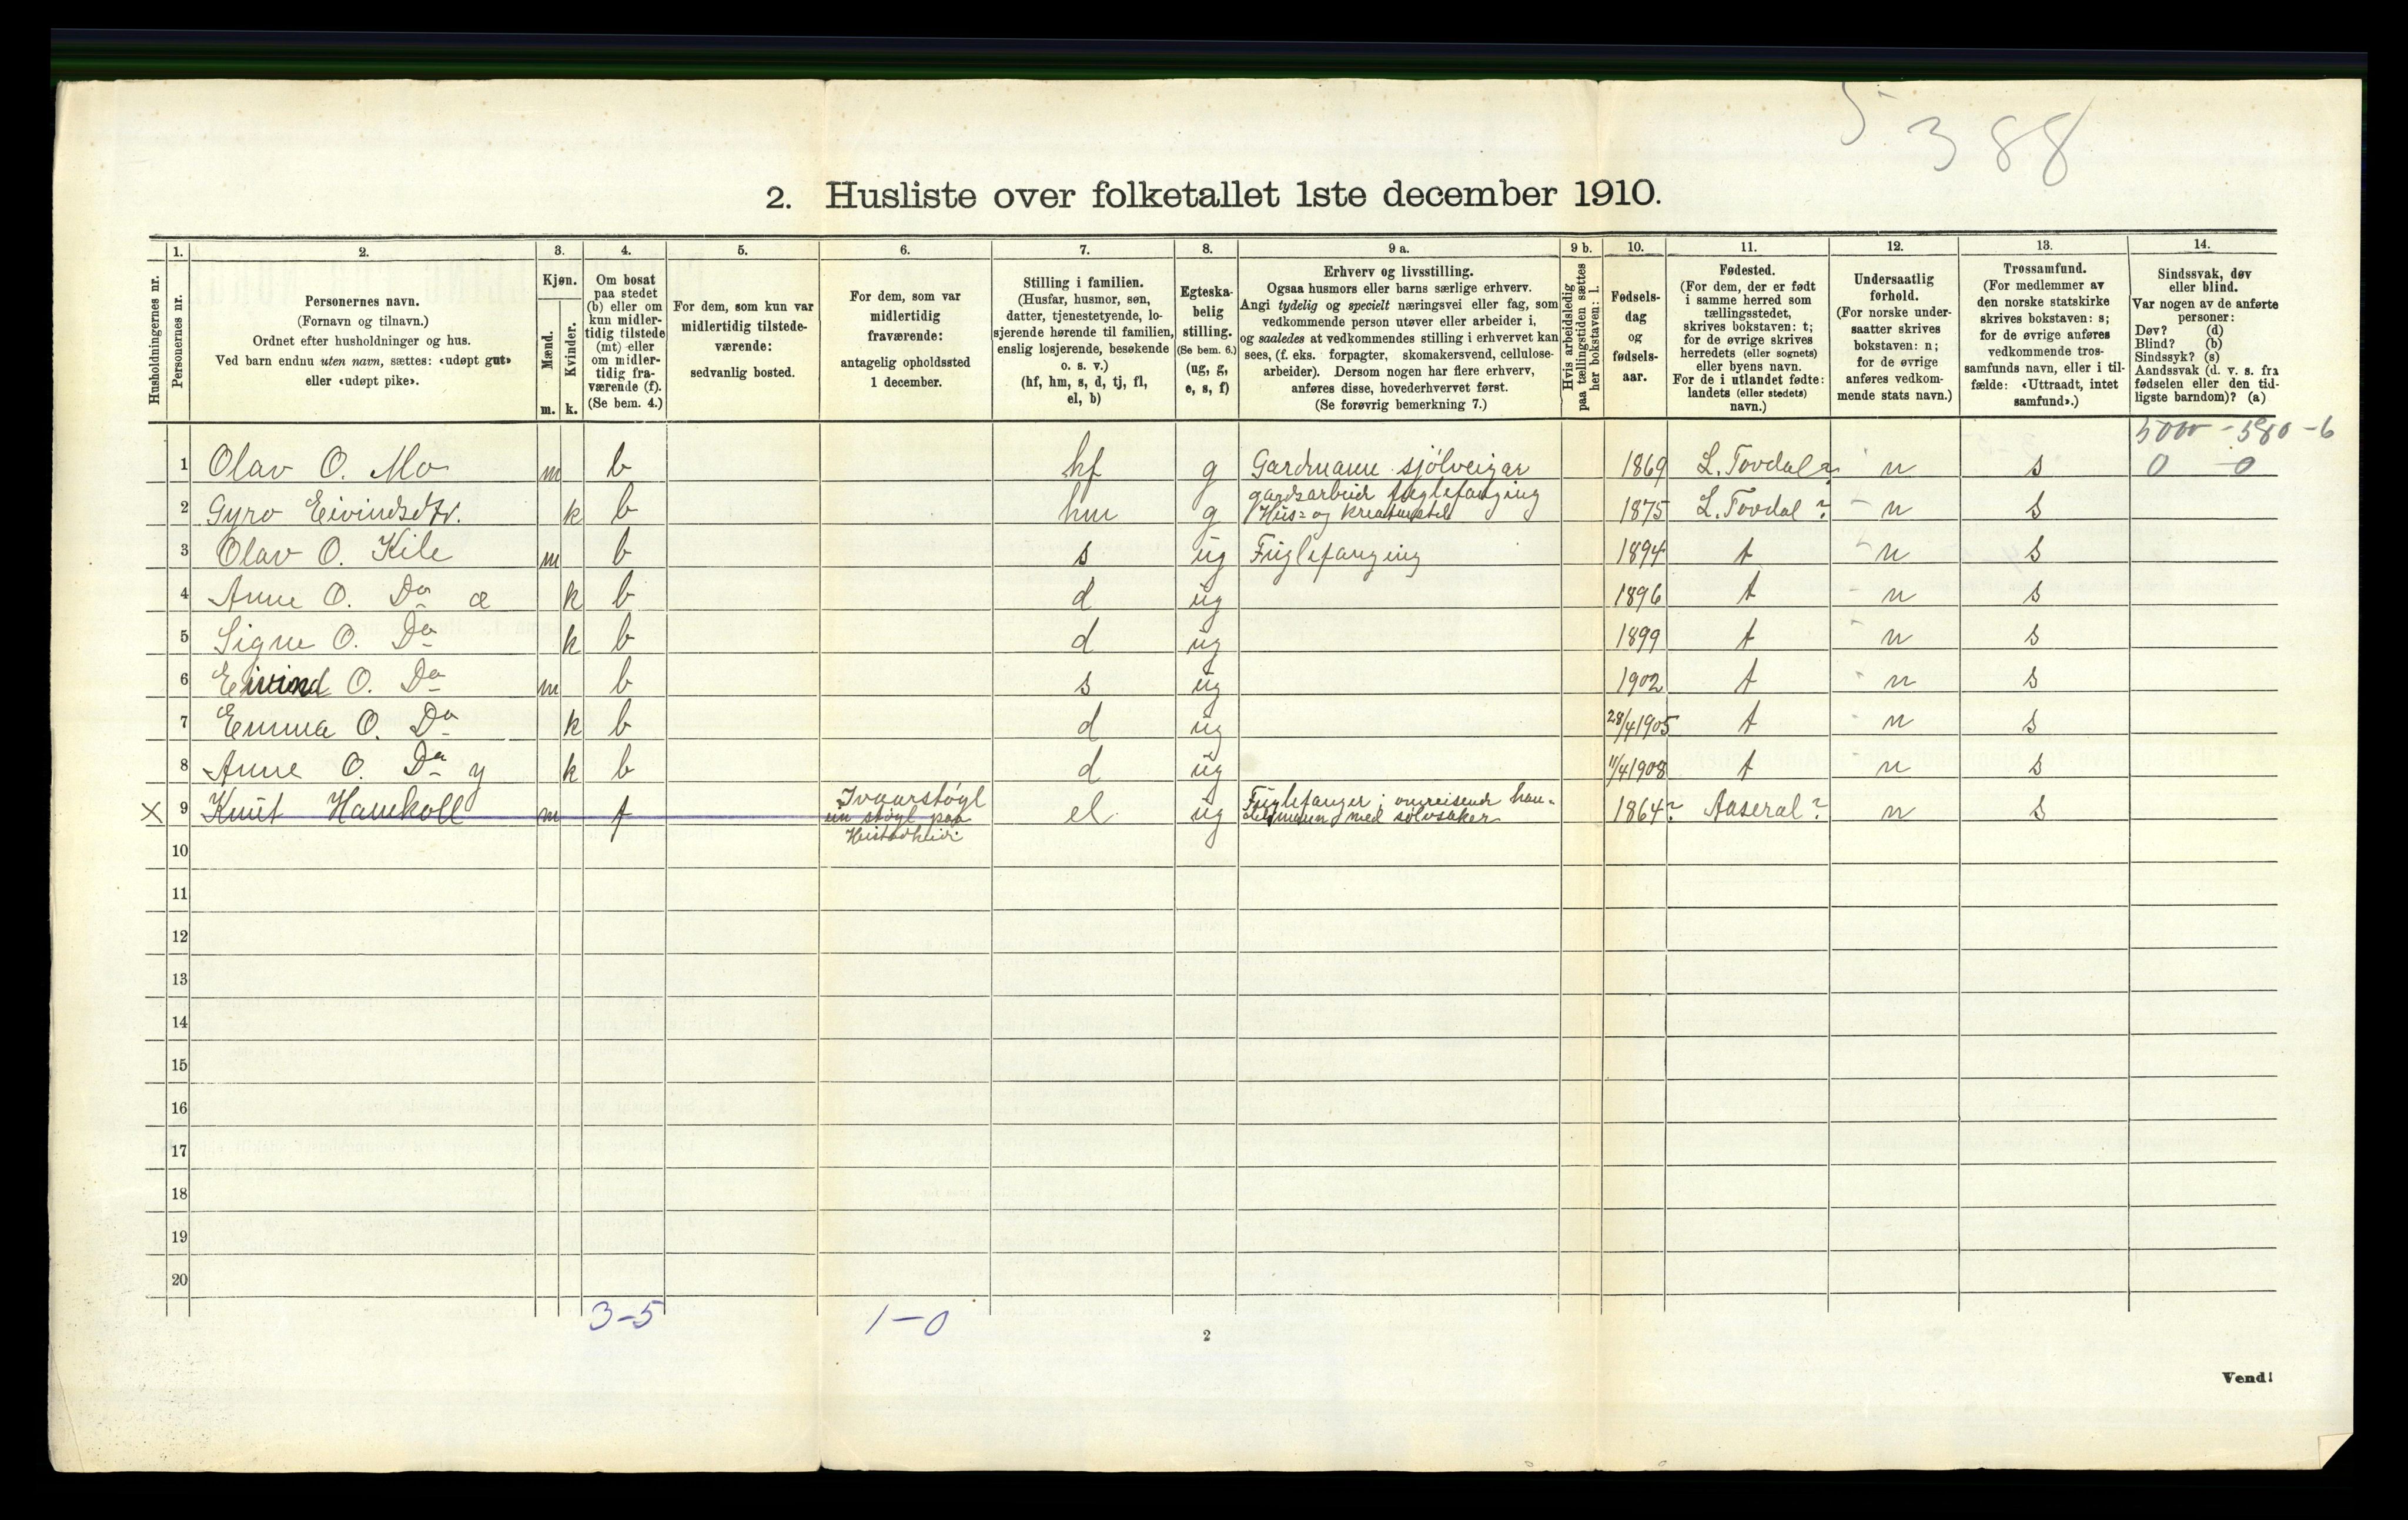 5
388
2. Husliste over folketallet 1ste december 1910.
Husholdningernes nr.
1.
Personernes nr.
2.
Personernes navn.
(Fornavn og tilnavn.)
Ordnet efter husholdninger og hus.
Ved barn endnu uten navn, sættes: «udøpt gut»
eller «udøpt pike».
3.
Kjøn.
Mænd.
Kvinder.
m. k.
4.
Om bosat
paa stedet
(b) eller om
kun midler-
tidig tilstede
(mt) eller
om midler-
tidig fra-
værende (f).
(Se bem. 4.)
5.
For dem, som kun var
midlertidig tilstede-
værende:
sedvanlig bosted.
6.
For dem, som var
midlertidig
fraværende:
antagelig opholdssted
1 december.
7.
Stilling i familien.
(Husfar, husmor, søn,
datter, tjenestetyende, lo-
sjerende hørende til familien,
enslig losjerende, besøkende
o. s. v.)
(hf, hm, s, d, tj, fl,
el, b)
8.
Egteska-
belig
stilling.
(Se bem. 6.)
(ug, g,
e, s, f)
9 a.
Erhverv og livsstilling.
Ogsaa husmors eller barns særlige erhverv.
Angi tydelig og specielt næringsvei eller fag, som
vedkommende person utøver eller arbeider i,
og saaledes at vedkommendes stilling i erhvervet kan
sees, (f. eks. forpagter, skomakersvend, cellulose-
arbeider). Dersom nogen har flere erhverv,
anføres disse, hovederhvervet først.
(Se forøvrig bemerkning 7.)
9 b.
Hvis arbeidsledig
paa tællingstiden sættes
her bokstaven: l.
10.
Fødsels-
dag
og
fødsels-
aar.
11.
Fødested.
(For dem, der er født
i samme herred som
tællingsstedet,
skrives bokstaven: t;
for de øvrige skrives
herredets (eller sognets)
eller byens navn.
For de i utlandet fødte:
landets (eller stedets)
navn.)
12.
Undersaatlig
forhold.
(For norske under-
saatter skrives
bokstaven: n;
for de øvrige
anføres vedkom-
mende stats navn.)
13.
Trossamfund.
(For medlemmer av
den norske statskirke
skrives bokstaven: s;
for de øvrige anføres
vedkommende tros-
samfunds navn, eller i til-
fælde: «Uttraadt, intet
samfund».)
14.
Sindssvak, døv
eller blind.
Var nogen av de anførte
personer:
Døv? (d)
Blind? (b)
Sindssyk? (s)
Aandssvak (d. v. s. fra
fødselen eller den tid-
ligste barndom)? (a)
5000 - 580 - 6
1 Olav O. Mo m b hf g Gardmann sjölveigar 1869 L. Tovdal? n s 0 0
gardsarbeid fuglefanging
2 Gyro Eivindsdtr. k b hm g Hus= og kreaturstel 1875 L. Tovdal? n s
3 Olav O. Kile m b s ug Fuglefanging 1894 t n s
4 Anne O. Do æ k b d ug 1896 t n s
5 Signe O. Do k b d ug 1899 t n s
6 Eivind O. Do m b s ug 1902 t n s
7 Emma O. Do k b d ug 28/4 1905 t n s
8 Anne O. Do y k b d ug 11/4 1908 t n s
X 9 Knut Hamkoll m f Ivaarstøyl
ein støyl paa
el ug Fuglefanger; omreisende han=
delsmann med sølvsaker 1864? Aaseral? n s
10
11
12
13
14
15
16
17
18
19
20
3-5
1-0
2
Vend!